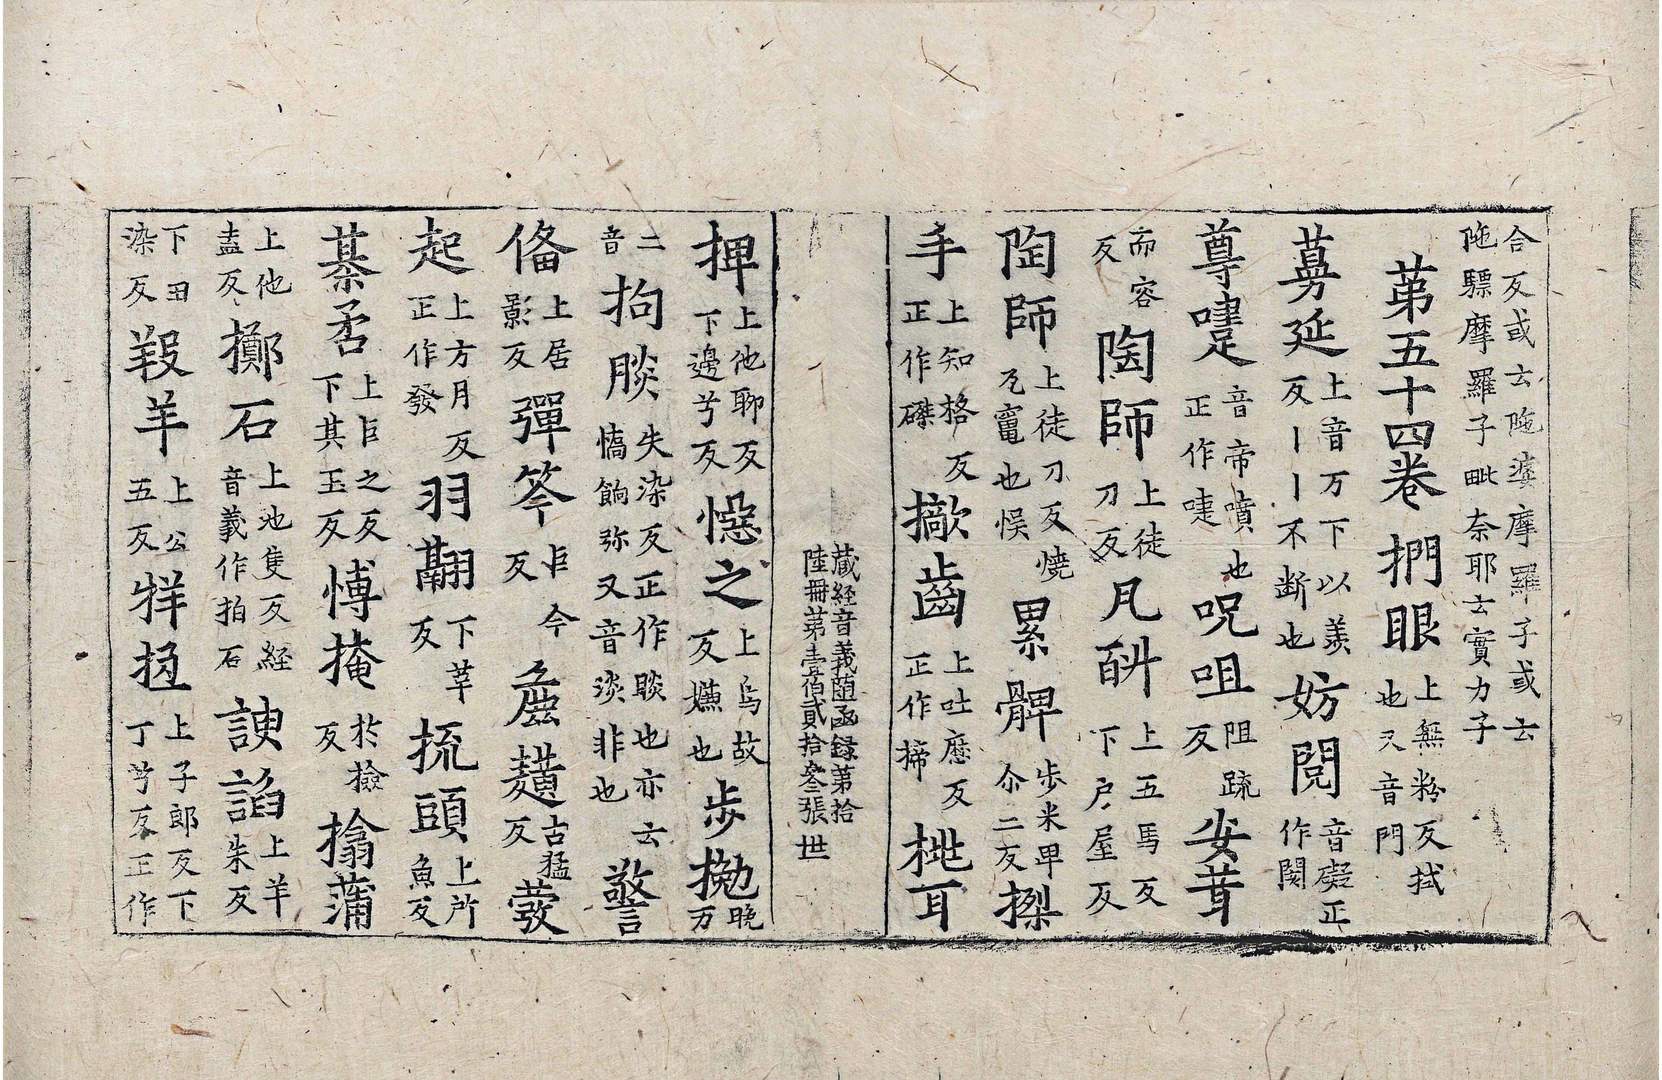 合反或云陁婆摩羅子或云
陁驃摩羅子毗奈耶云實力子
第五十四卷 捫眼 上無粉反拭也又音門
蔓延 上音万下以羡反丨丨不断也 妨閡 音礙正作閡
蕁嚏 音帝噴也正作嚏 呪咀 阻疏反 安茸
而容反 陶師 上徒刀反 凡𪿫 上五馬反下户屋反
陶師 上徒刀反燒瓦竃也悮 累髀 歩米畀尒二反 搩
手 上知格反正作磔 擨齒 上吐厯反正作揥 桃耳
藏経音義随函録第拾
陸冊第壹伯貳拾叄張 世
押 上他聊反下邊兮反 𢠢之 上烏故反嫌也 歩㧾 晚万
二音 拘胅 失染反正作睒也亦云憍餉弥又音淡非也 警
俻 上居影反 彈笒 巨今反 麁䵃 古猛反 薆
起 上方月反正作發 羽翿 下莘反 梳頭 上所魚反
綦矟 上巨之反下其玉反 愽掩 扵撿反 擒蒲
上他盍反 擲石 上池隻反経音義作拍石 諛諂 上羊朱反
下田染反 羖羊 上公五反 牂𢫫 上子郎反下丁兮反正作